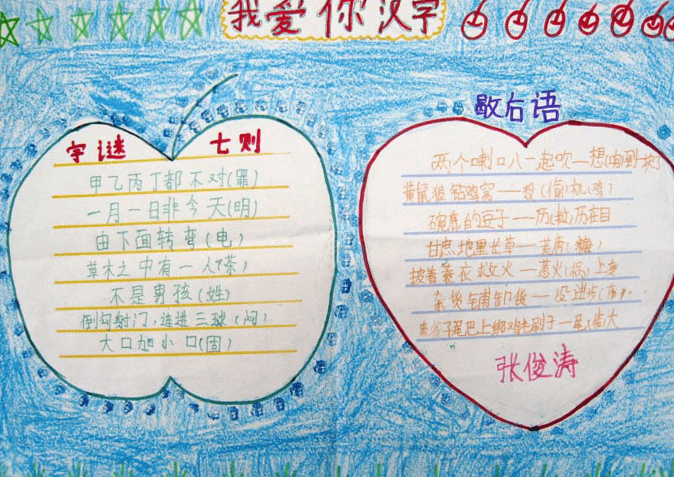 我爱你汉字
字谜 七则
甲乙丙丁都不对(罪)
一月一日非今天(明)
由下面转弯(电)
草木之中有一人(茶)
不是男孩(姓)
倒勾射门,连进三球(闷)
大口加小口(回)
歇后语
两个喇叭一起吹—想(响)到一块
黄鼠狼钻鸡窝——投(偷)机(鸡)
碗底的豆子——历(粒)历在目
甘蔗地里长草—荒唐(糖)
披着蓑衣救火—惹火(祸)上身
杂货铺卸货—没进步(布)
张俊涛